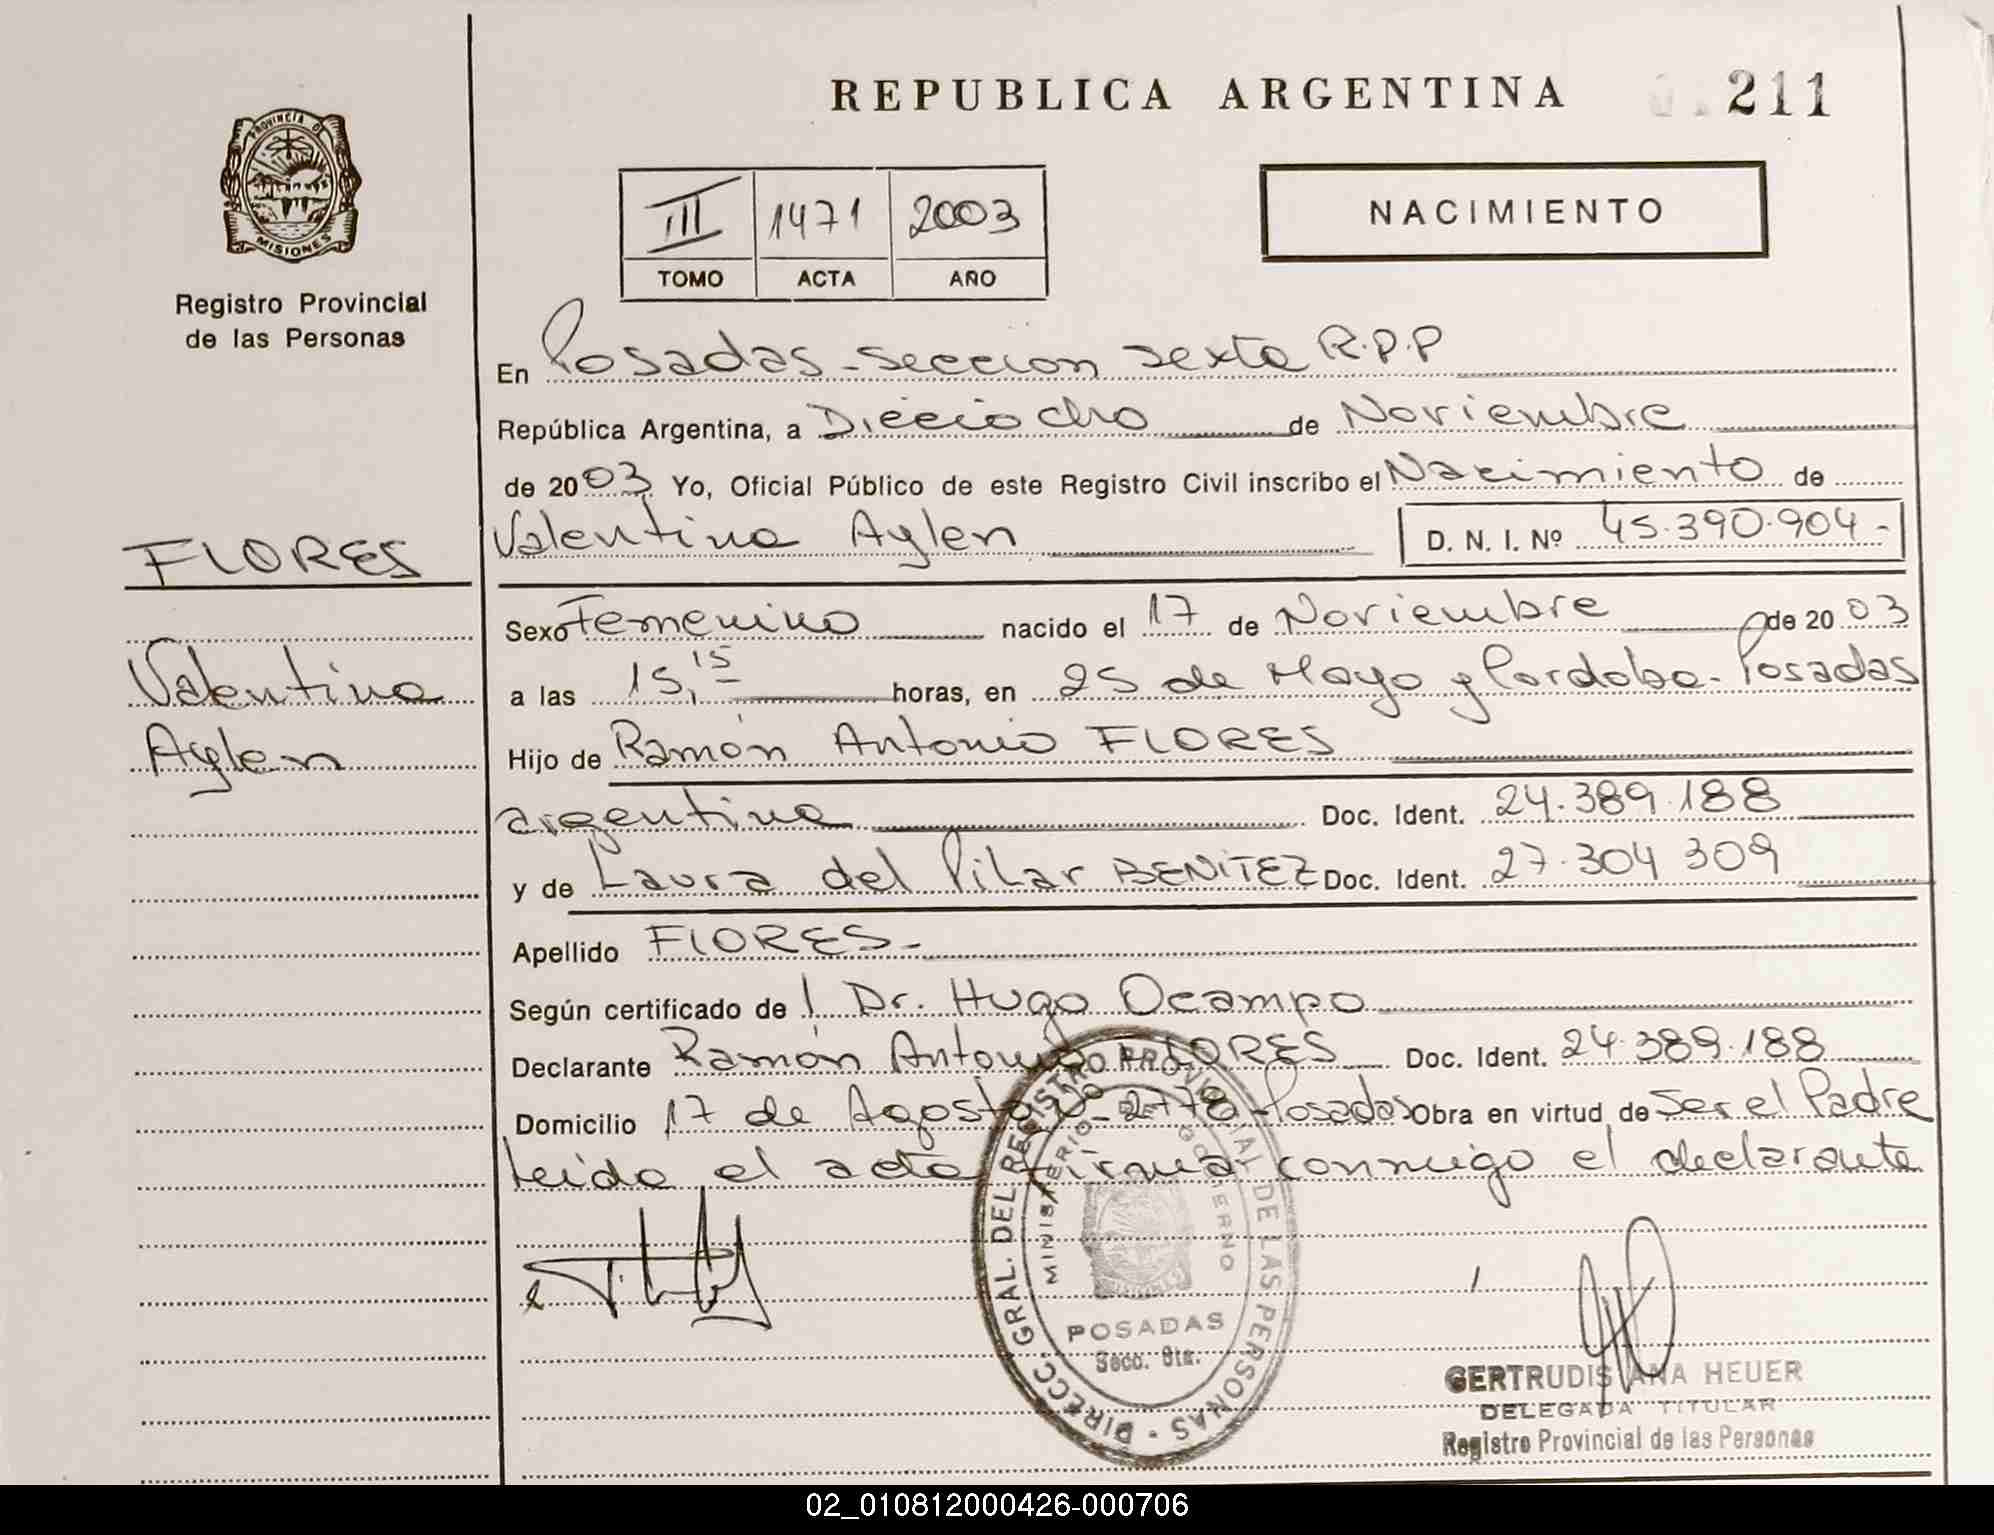 REPUBLICA ARGENTINA 211
PROVINCIA DE
MISIONES
Registro Provincial
de las Personas
III 1471 2003
TOMO ACTA AÑO
NACIMIENTO
En Posadas - seccion sexta R.P.P
República Argentina, a Dieciocho de Noviembre
de 2003 Yo, Oficial Público de este Registro Civil inscribo el Nacimiento de
Valentina Aylen D. N. I. Nº 45.390.904-
FLORES
Valentina
Aylen
Sexo Femenino nacido el 17 de Noviembre de 2003
a las 15,15 horas, en 25 de Mayo y Cordoba - Posadas
Hijo de Ramón Antonio FLORES
argentina Doc. Ident. 24.389.188
y de Laura del Pilar BENITEZ Doc. Ident. 27.304 309
Apellido FLORES-
Según certificado de Dr. Hugo Ocampo
Declarante Ramón Antonio FLORES Doc. Ident. 24.389.188
Domicilio 17 de Agosto 2778 - Posadas Obra en virtud de Ser el Padre
Leida el acta firma conmigo el declarante
DIRECC. GRAL. DEL REGISTRO PROVINCIAL DE LAS PERSONAS
MINISTERIO DE GOBIERNO
POSADAS
Secc. 6ta.
GERTRUDIS ANA HEUER
DELEGADA TITULAR
Registro Provincial de las Personas
02_010812000426-000706